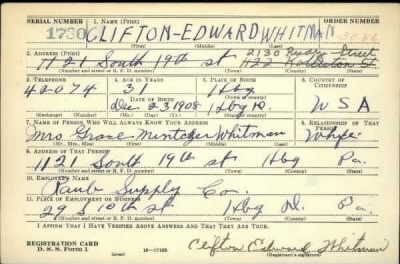 SERIAL NUMBER 1. NAME (Print) ORDER NUMBER
1730 CLIFTON-EDWARD WHITMAN 3086
(First) (Middle) (Last)
2. ADDRESS (Print) 2130 Street
1121 South 19th st 1122 St
(Number and street or R. F. D. number) (Town) (County) (State)
3. TELEPHONE 4. AGE IN YEARS 5. PLACE OF BIRTH 6. COUNTRY OF CITIZENSHIP
42074 31 Hbg
DATE OF BIRTH (Town or county)
Dec 23 1908 USA
(Mo.) (Day) (Yr.) (State or country)
7. NAME OF PERSON WHO WILL ALWAYS KNOW YOUR ADDRESS 8. RELATIONSHIP OF THAT PERSON
Mrs Grace Whitman
(Mr., Mrs., Miss) (First) (Middle) (Last)
9. ADDRESS OF THAT PERSON
1121 South 19th st Hbg Pa.
(Number and street or R. F. D. number) (Town) (County) (State)
10. EMPLOYER'S NAME
Raub Supply Co.
11. PLACE OF EMPLOYMENT OR BUSINESS
29 S 10th st Hbg D. Pa
(Number and street or R. F. D. number) (Town) (County) (State)
I AFFIRM THAT I HAVE VERIFIED ABOVE ANSWERS AND THAT THEY ARE TRUE.
REGISTRATION CARD
D. S. S. Form 1 16-17105 Clifton Edward Whitman
(Registrant's signature)